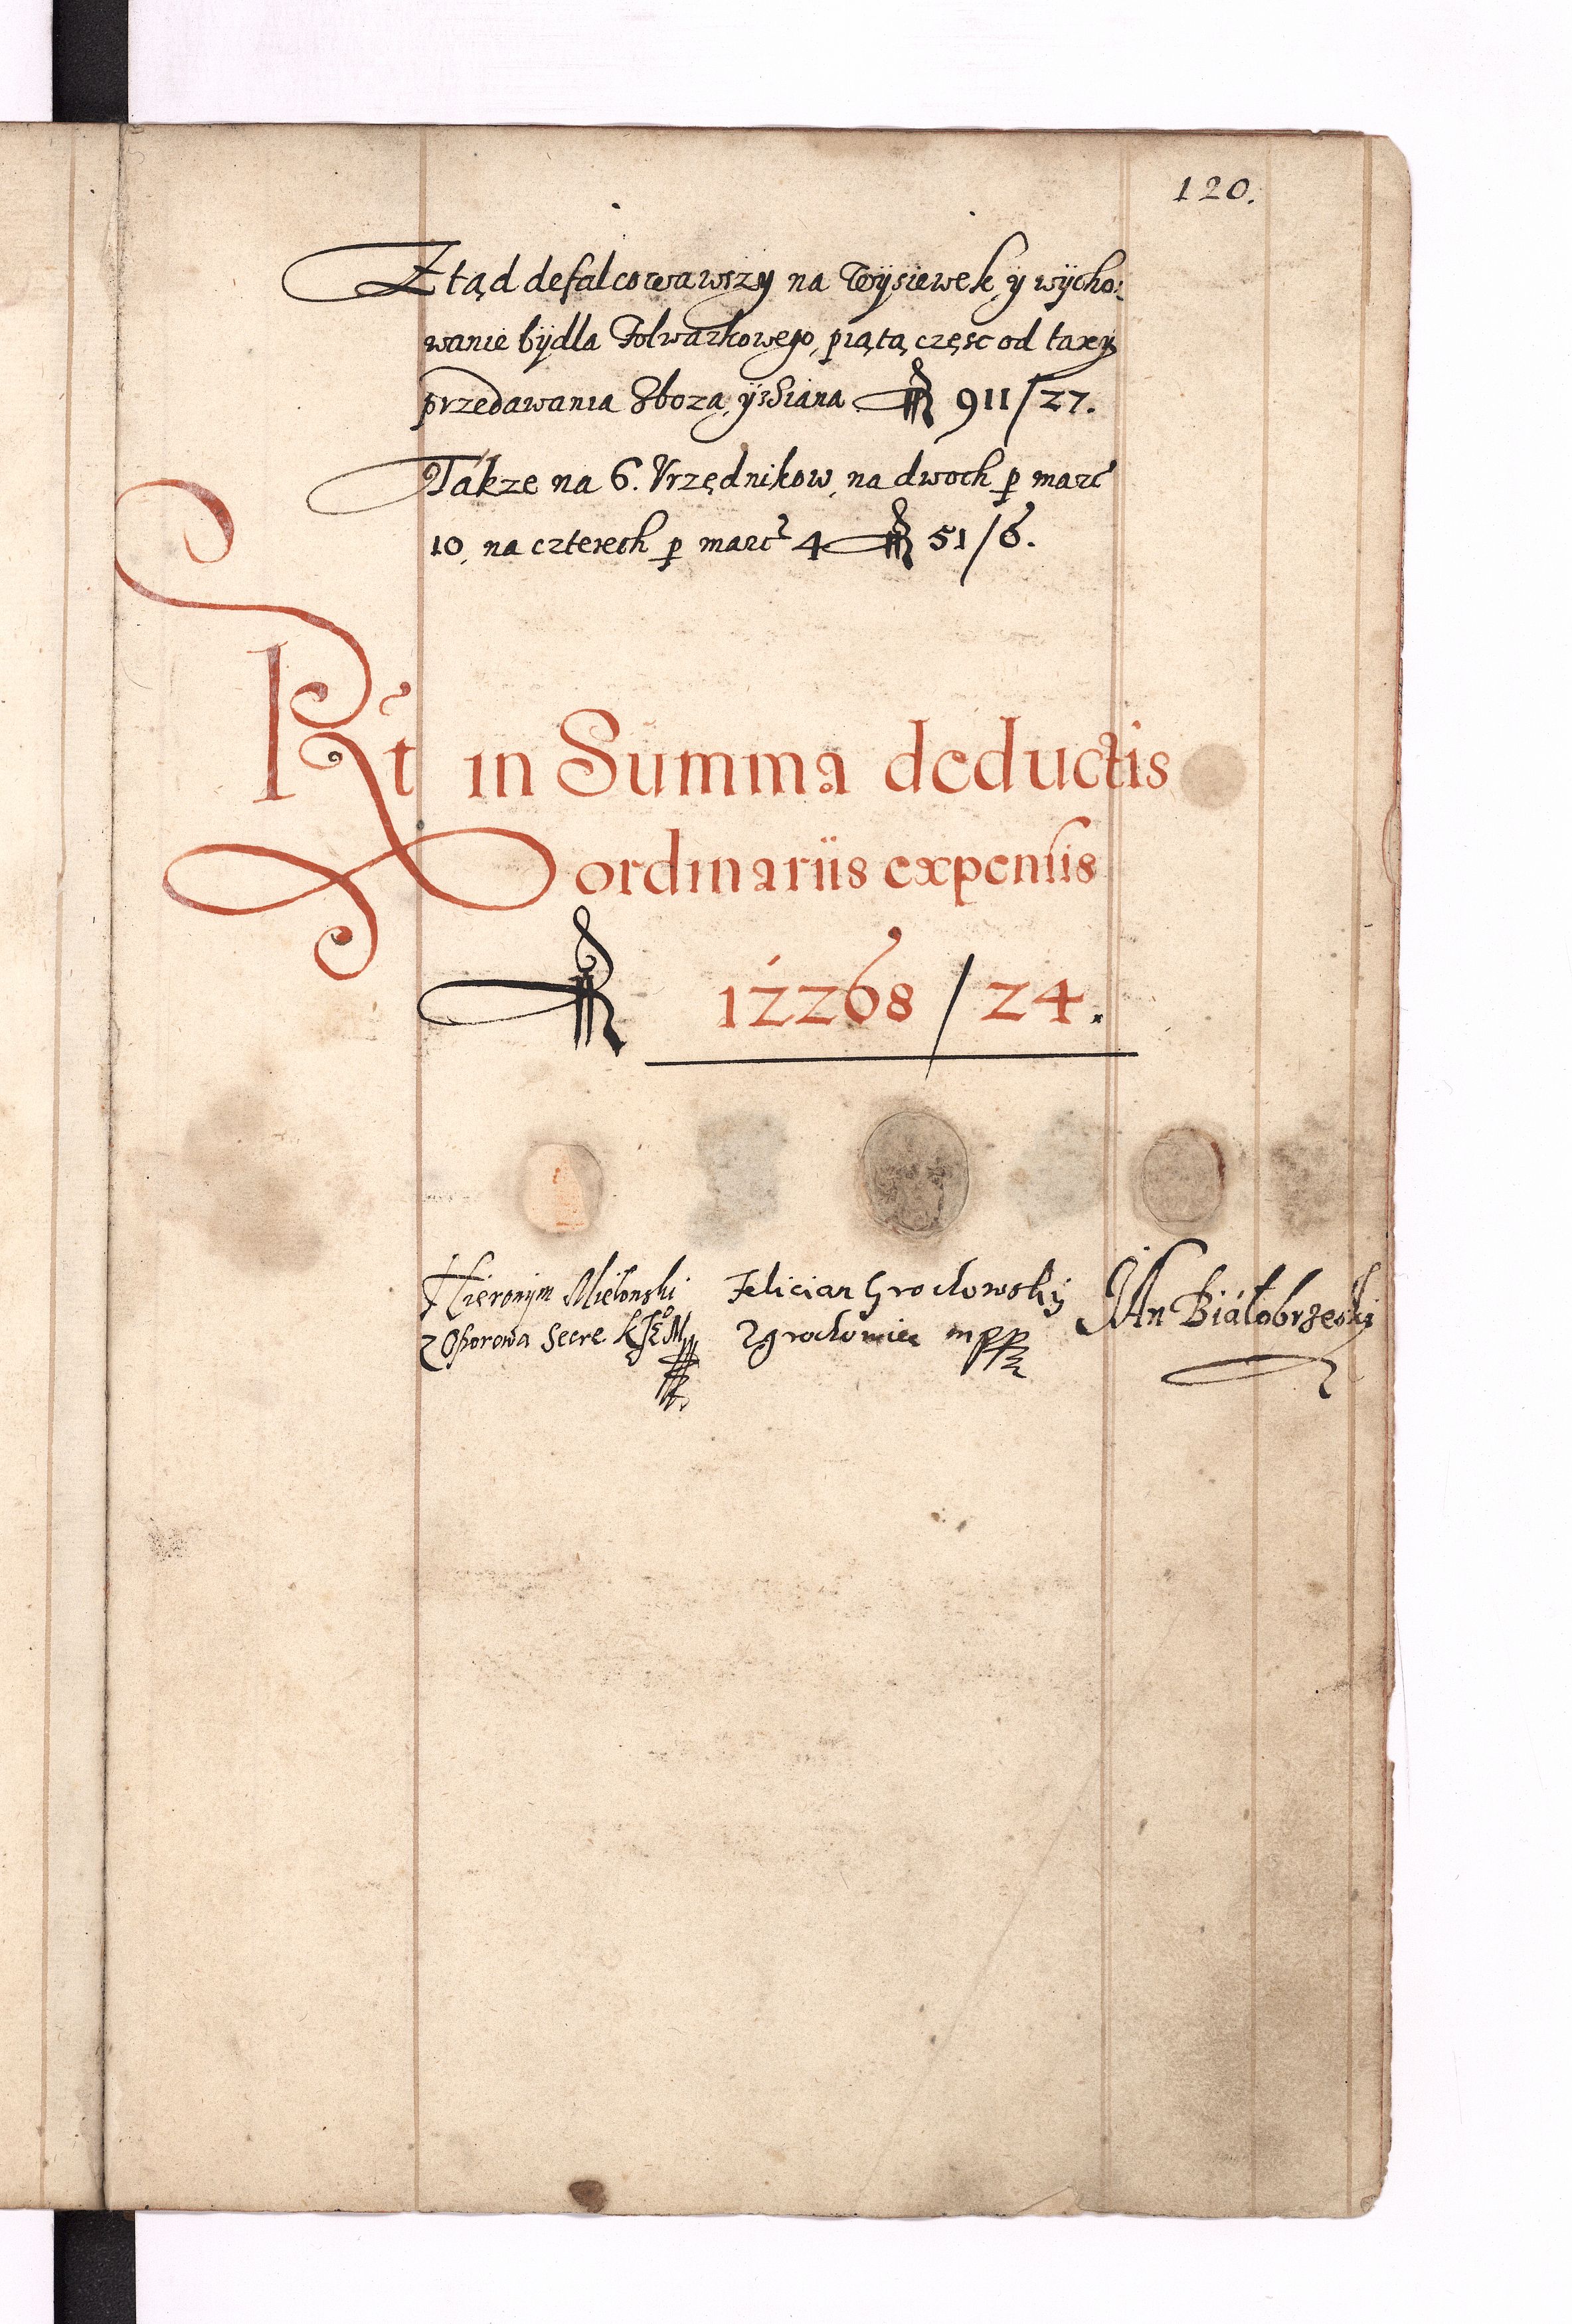 120.
Ztąd defalcowawszy na Wysiewek, y wÿcho:
wanie bÿdla Folwarkowego, piątą częsc od taxy
przedawania Zboza, ÿ Siana fl 911/27.
Takze na 6. Vrzędnikow, na dwoch ꝑ marc
10, na czterech ꝑ marc 4 fl 51/6.
Rt in Summa deductis
ordinariis expensis
fl 12268/24.
Hieronym Mielonski Felician Grochowskÿ JAn Białobrzeski
z Oporowa Secre KJE°M Z grochowicz mpp